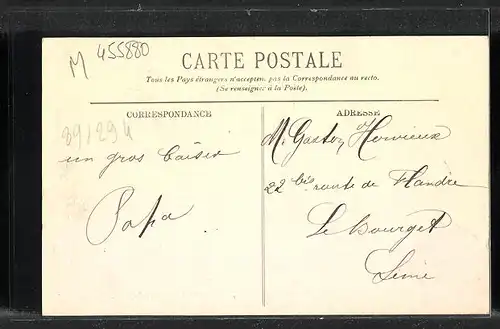 M 455880
CARTE POSTALE
Tous les Pays étrangers n'acceptent pas la Correspondance au recto.
(Se renseigner à la Poste).
CORRESPONDANCE
89/294
un gros baiser
Papa
ADRESSE
M. Gaston Hervieux
22 bis route de Flandre
Le Bourget
Seine